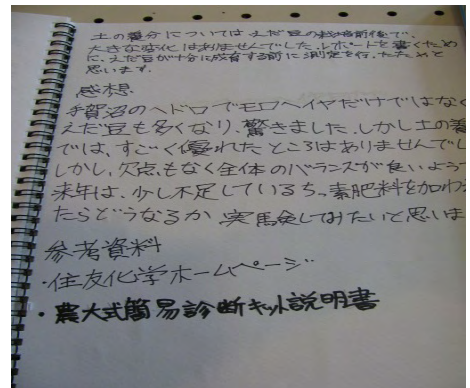 土の養分については えだ豆の栽培前後で、
大きな変化はありませんでした。レポートを書くため
に、えだ豆が十分に成育する前に測定を行ったためと
思います。
感想
手賀沼のヘドロでモロヘイヤだけではなく
えだ豆も多くなり、驚きました。しかし土の養
では、すごく優れたところはありませんでし
しかし、欠点もなく全体のバランスが良いよう
来年は、少し不足しているちっ素肥料を加わ
たらどうなるか 実験してみたいと思いま
参考資料
・住友化学ホームページ
・農大式簡易診断キット説明書